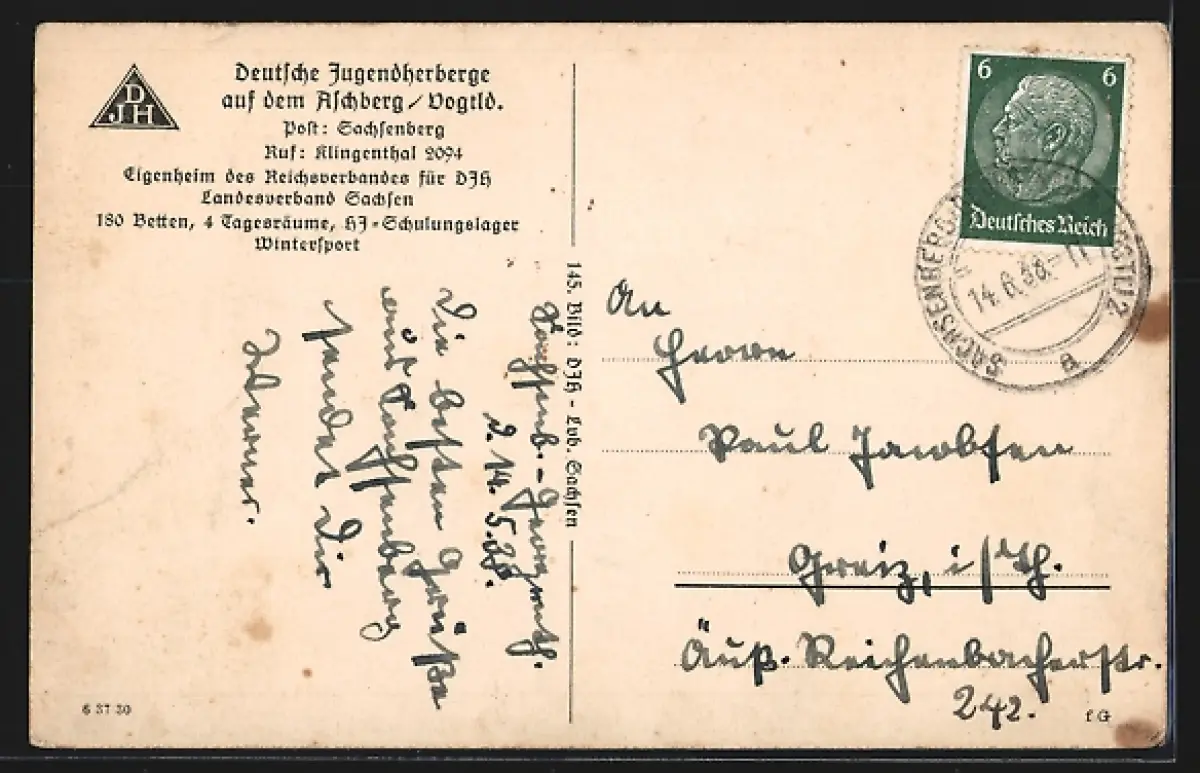 DJH
Deutsche Jugendherberge
auf dem Aschberg/Vogtld.
Post: Sachsenberg
Ruf: Klingenthal 2094
Eigenheim des Reichsverbandes für DJH
Landesverband Sachsen
180 Betten, 4 Tagesräume, HJ-Schulungslager
Wintersport
145. Bild: DJH - Lvb. Sachsen
Sachsenb.-Georgenth.
d. 14. 5. 38.
Die besten Grüße
aus Sachsenberg
sendet Dir
Werner.
6 37 30
6 6
Deutsches Reich
SACHSENBERG
14.6.38.-11
a
An
Herrn
Paul Jacobsen
Greiz, i/Th.
Äuß. Reichenbacherstr.
242.
f G